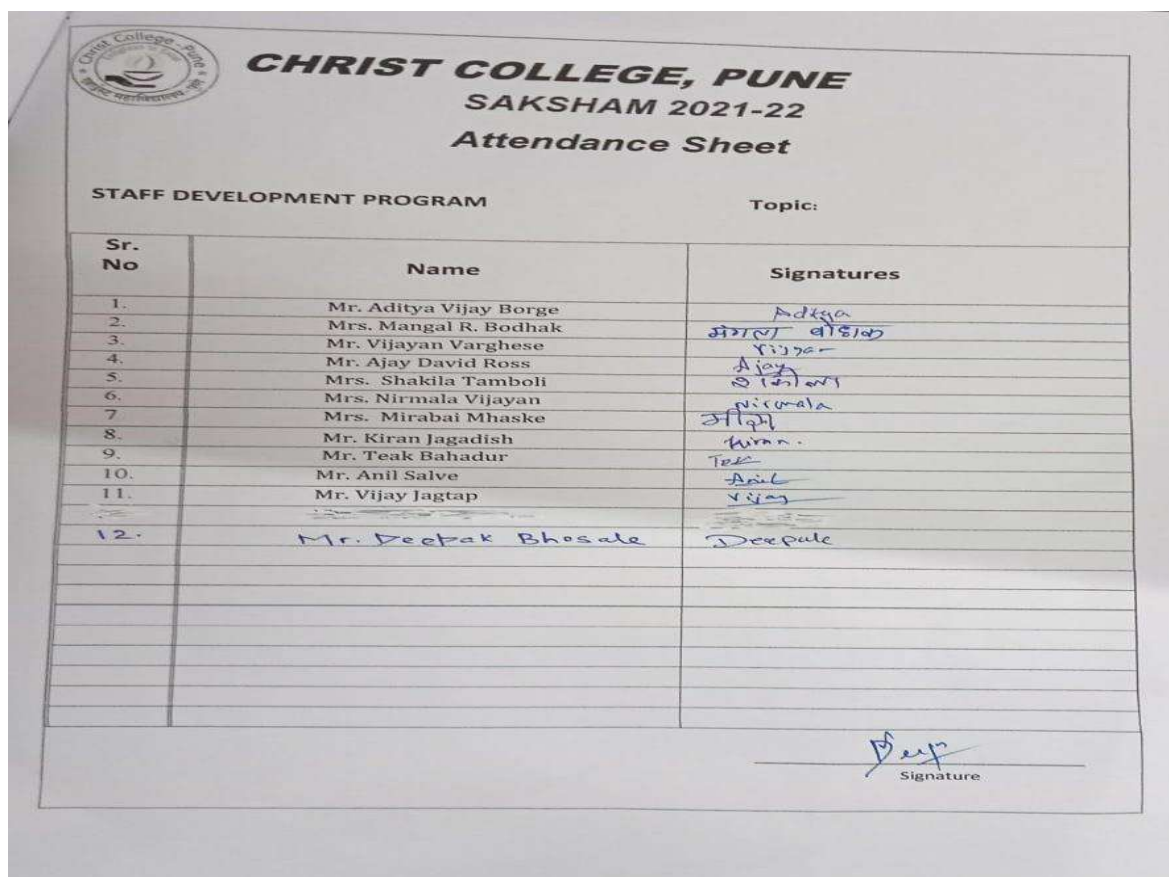 Christ College - Pune
CHRIST COLLEGE, PUNE
SAKSHAM 2021-22
Attendance Sheet
STAFF DEVELOPMENT PROGRAM Topic:
Sr. No Name Signatures
1. Mr. Aditya Vijay Borge Aditya
2. Mrs. Mangal R. Bodhak मंगला बोडाक
3. Mr. Vijayan Varghese
4. Mr. Ajay David Ross Ajay
5. Mrs. Shakila Tamboli
6. Mrs. Nirmala Vijayan Nirmala
7 Mrs. Mirabai Mhaske
8. Mr. Kiran Jagadish Kiran.
9. Mr. Teak Bahadur Tek
10. Mr. Anil Salve Anil
11. Mr. Vijay Jagtap Vijay
12. Mr. Deepak Bhosale Deepak
Signature